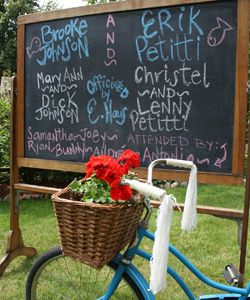 Brooke
Johnson
AND
Erik
Petitti
Mary Ann
and
Dick
Johnson
Officiated
by
E. Hays
Christel
and
Lenny
Petitti
Samantha~Joey
Ryan~Bunny~Andre
Attended by: